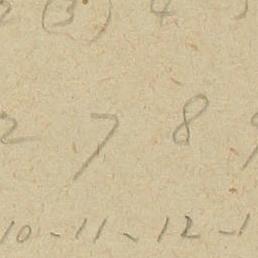 2 (3) 4 5
2 7 8 9
10 - 11 - 12 - 1